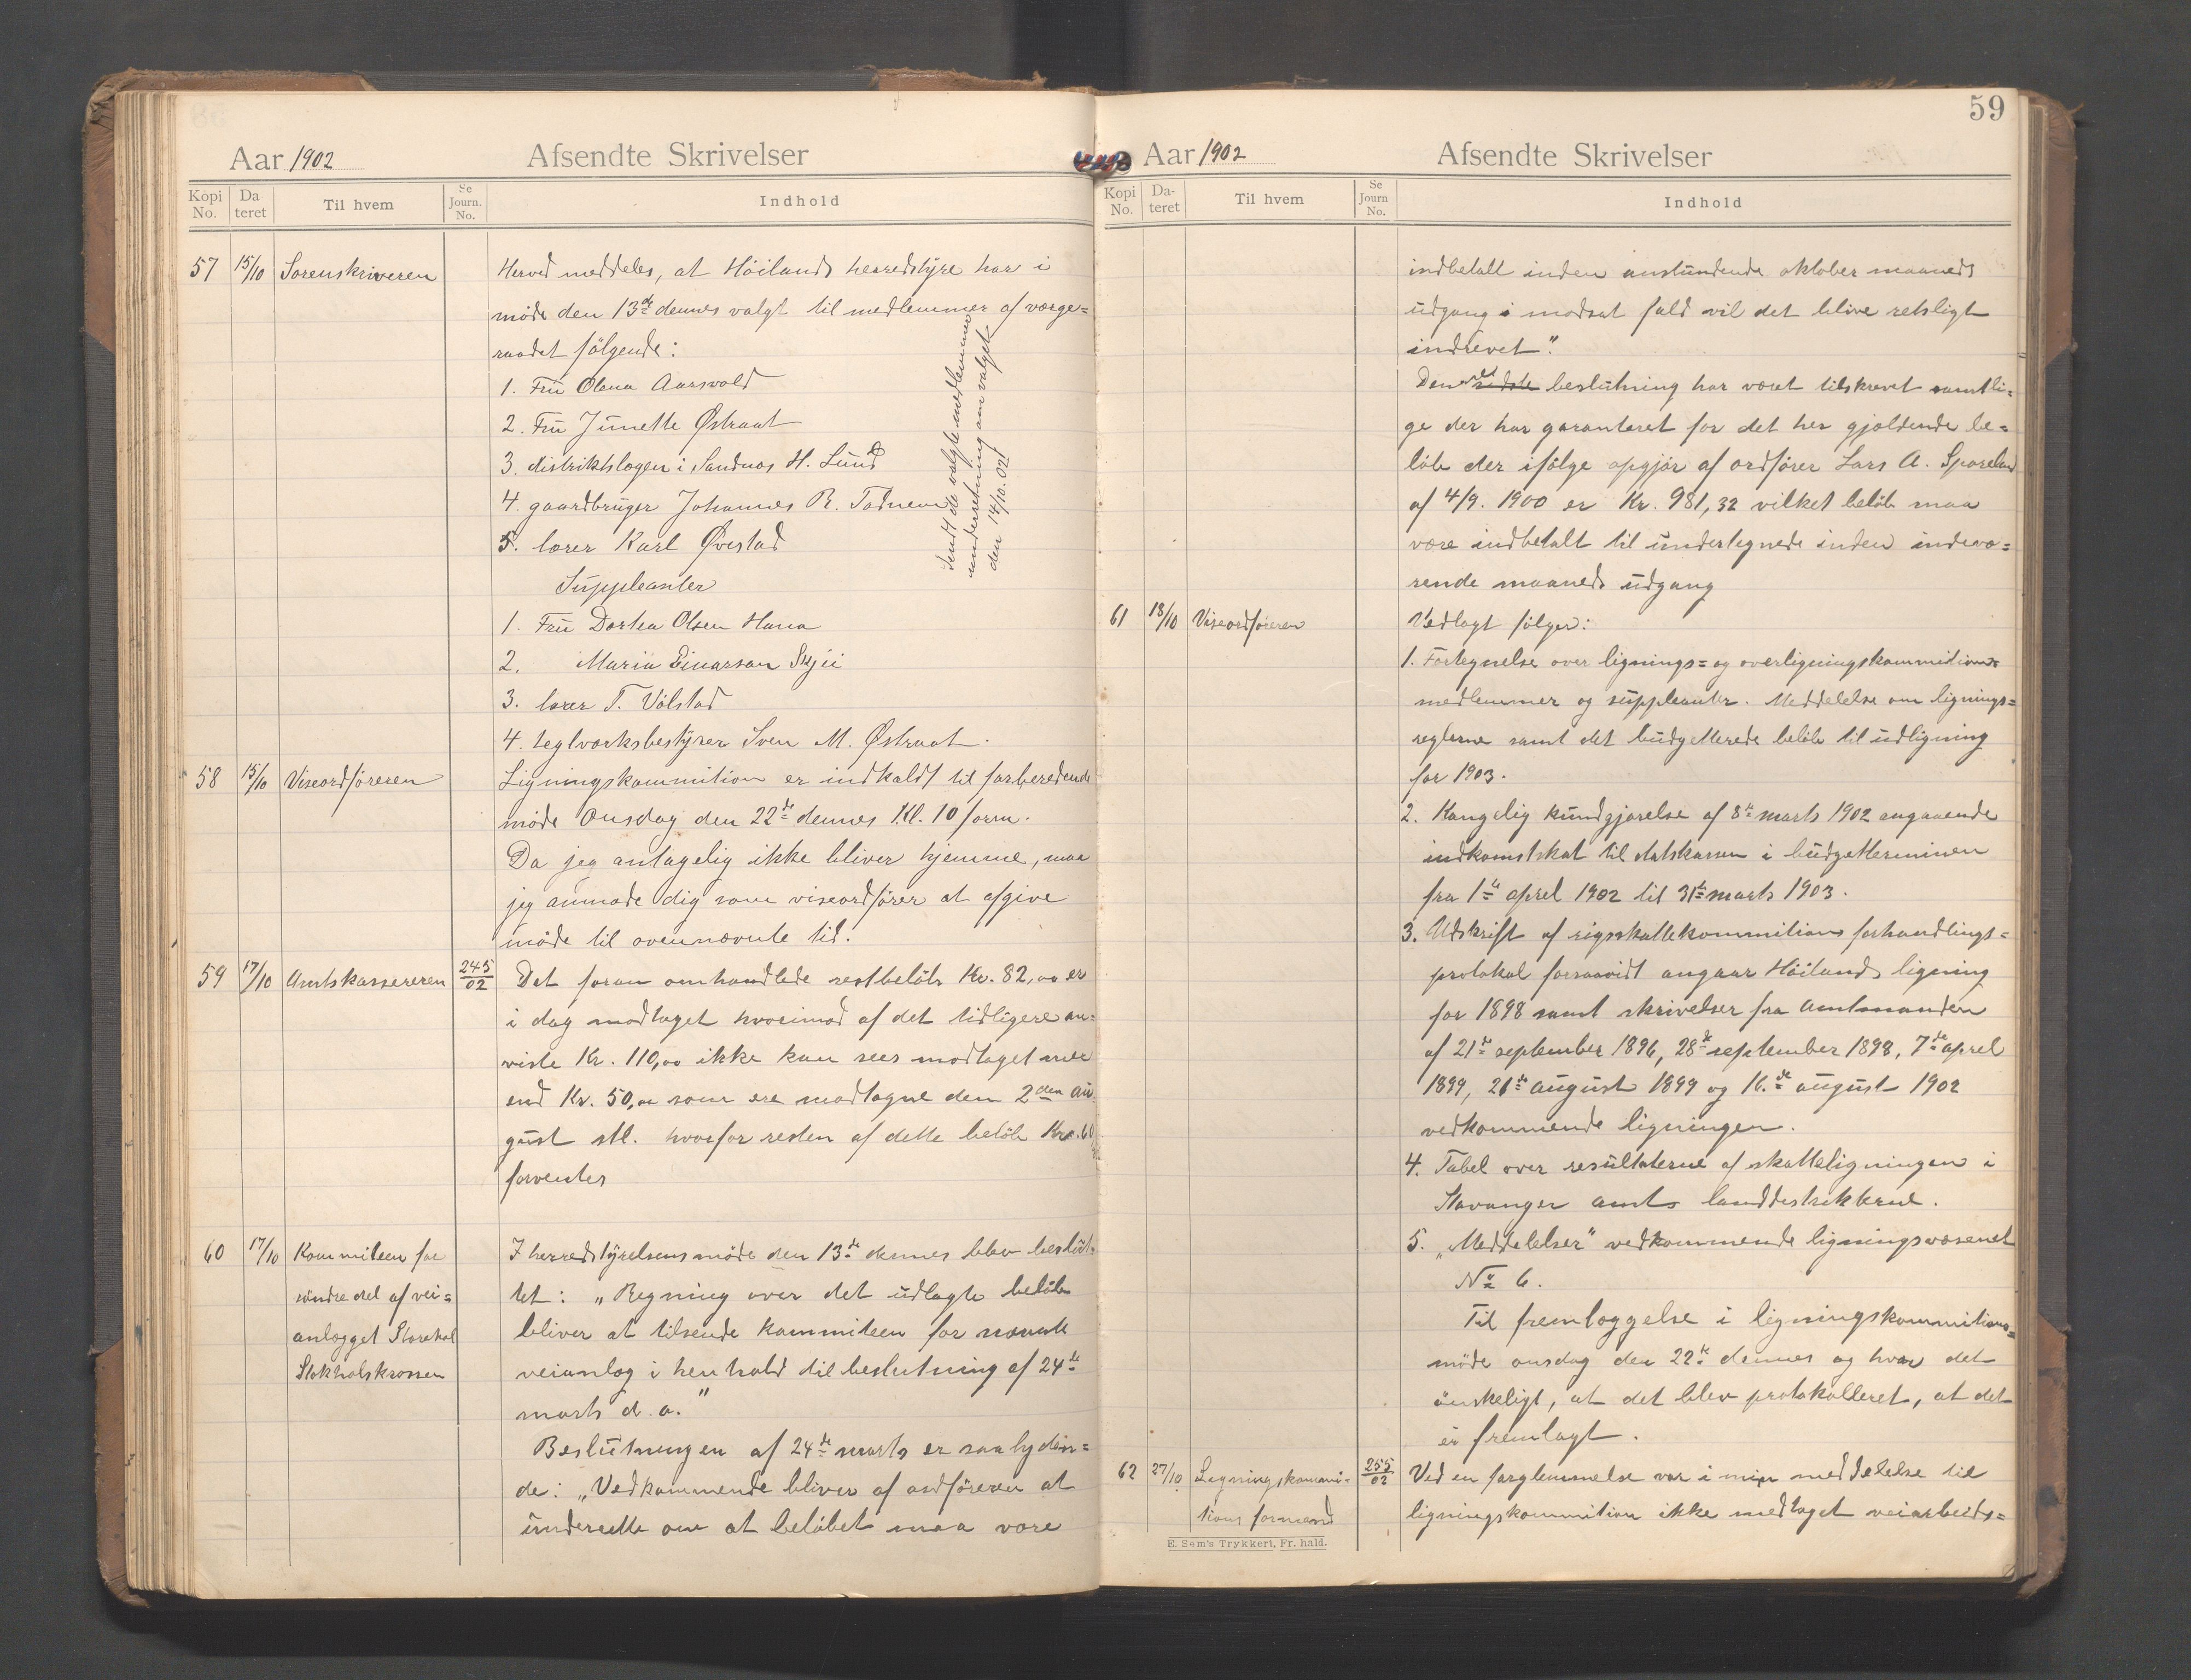 Aar 1902 Afsendte Skrivelser
Kopi No. Da teret Til hvem Se Journ. No. Indhold
57 15/10 Sorenskriveren Herved meddeles, at Höilands herredstyre har i
möde den 13de dennes valgt til medlemmer af værge=
raadet fölgende:
1. Fru Olena Aarsvold
2. Fru Junette Østraat
3. distriktslægen i Sandnæs H. Lund
4. gaardbruger Johannes R. Tadnem
5. lærer Karl Øvestad
Suppleanter
1. Fru Dortea Olsen Hana
2. Maria Einarsen Skjii
3. lærer T. Völstad
4. teglværksbestyrer Sven M. Østraat.
Sendt de valgte medlemmer
underretning om valget
den 14/10. 02
58 15/10 Viseordföreren Ligningskommition er indkaldt til forberedende
möde Onsdag den 22de dennes Kl. 10 form.
Da jeg antagelig ikke bliver hjemme, maa
jeg anmode dig som viseordförer at afgive
möde til ovennævnte tid.
59 17/10 Amtskassereren 245/02 Det foran omhandlede restbelöb Kr. 82,00 er
i dag modtaget hvorimod af det tidligere an=
viste Kr. 110,00 ikke kan sees modtaget mer
end Kr. 50,00 som ere modtagne den 2den au=
gust stl. hvorfor resten af dette belöb Kr. 60
forventes
60 17/10 Kommiteen for I herredstyrelsens möde den 13de dennes blev beslut=
söndre del af vei= tet: „Regning over det udlagte belöb
anlægget Storehol bliver at tilsende kommiteen for nævnte
Stokholskrossen veianlæg i henhold til beslutning af 24de
marts d. a."
Beslutningen af 24de marts er saa lyden=
de: „Vedkommende bliver af ordföreren at
underrette om at belöbet maa være
59
Aar 1902 Afsendte Skrivelser
Kopi No. Da- teret Til hvem Se Journ No. Indhold
indbetalt inden anstundende oktober maaneds
udgang i modsat fald vil det blive retsligt
indrevet".
Den sidste beslutning har været tilskrevet samtli=
ge der har garanteret for det her gjældende be=
löb der ifölge opgjör af ordförer Lars A. Sporeland
af 4/9. 1900 er Kr. 981,32 vilket belöb maa
være indbetalt til undertegnede inden indevæ=
rende maaneds udgang
61 18/10 Viseordföreren Vedlagt fölger:
1. Fortegnelse over lignings= og overligningskommitions=
medlemmer og suppleanter. Meddelelse om lignings=
reglerne samt det budgetterede belöb til udligning
for 1903.
2. Kongelig kundgjörelse af 8de marts 1902 angaaende
indkomstskat til statskassen i budgetterminen
fra 1ste aprel 1902 til 31te marts 1903.
3. Udskrift af rigsskattekommitions forhandlings=
protokol forsaavidt angaar Höilands ligning
for 1898 samt skrivelser fra Amtmanden
af 21de september 1896, 28de september 1898, 7de aprel
1899, 26de august 1899 og 16.de august 1902
vedkommende ligningen.
4. Tabel over resultaterne af skatteligningen i
Stavanger amts landdistrikterne.
5. „Meddelelser" vedkommende ligningsvæsenet
No 6.
Til fremlæggelse i ligningskommitions=
möde onsdag den 22de dennes og hvor det
önskeligt, at det blev protokolleret, at det
er fremlagt.
62 27/10 Ligningskommi- 255/02 Ved en forglemmelse var i min meddelelse til
tions formand ligningskommition ikke medtaget veiarbeids=
E. Sem's Trykkeri, Fr. hald.